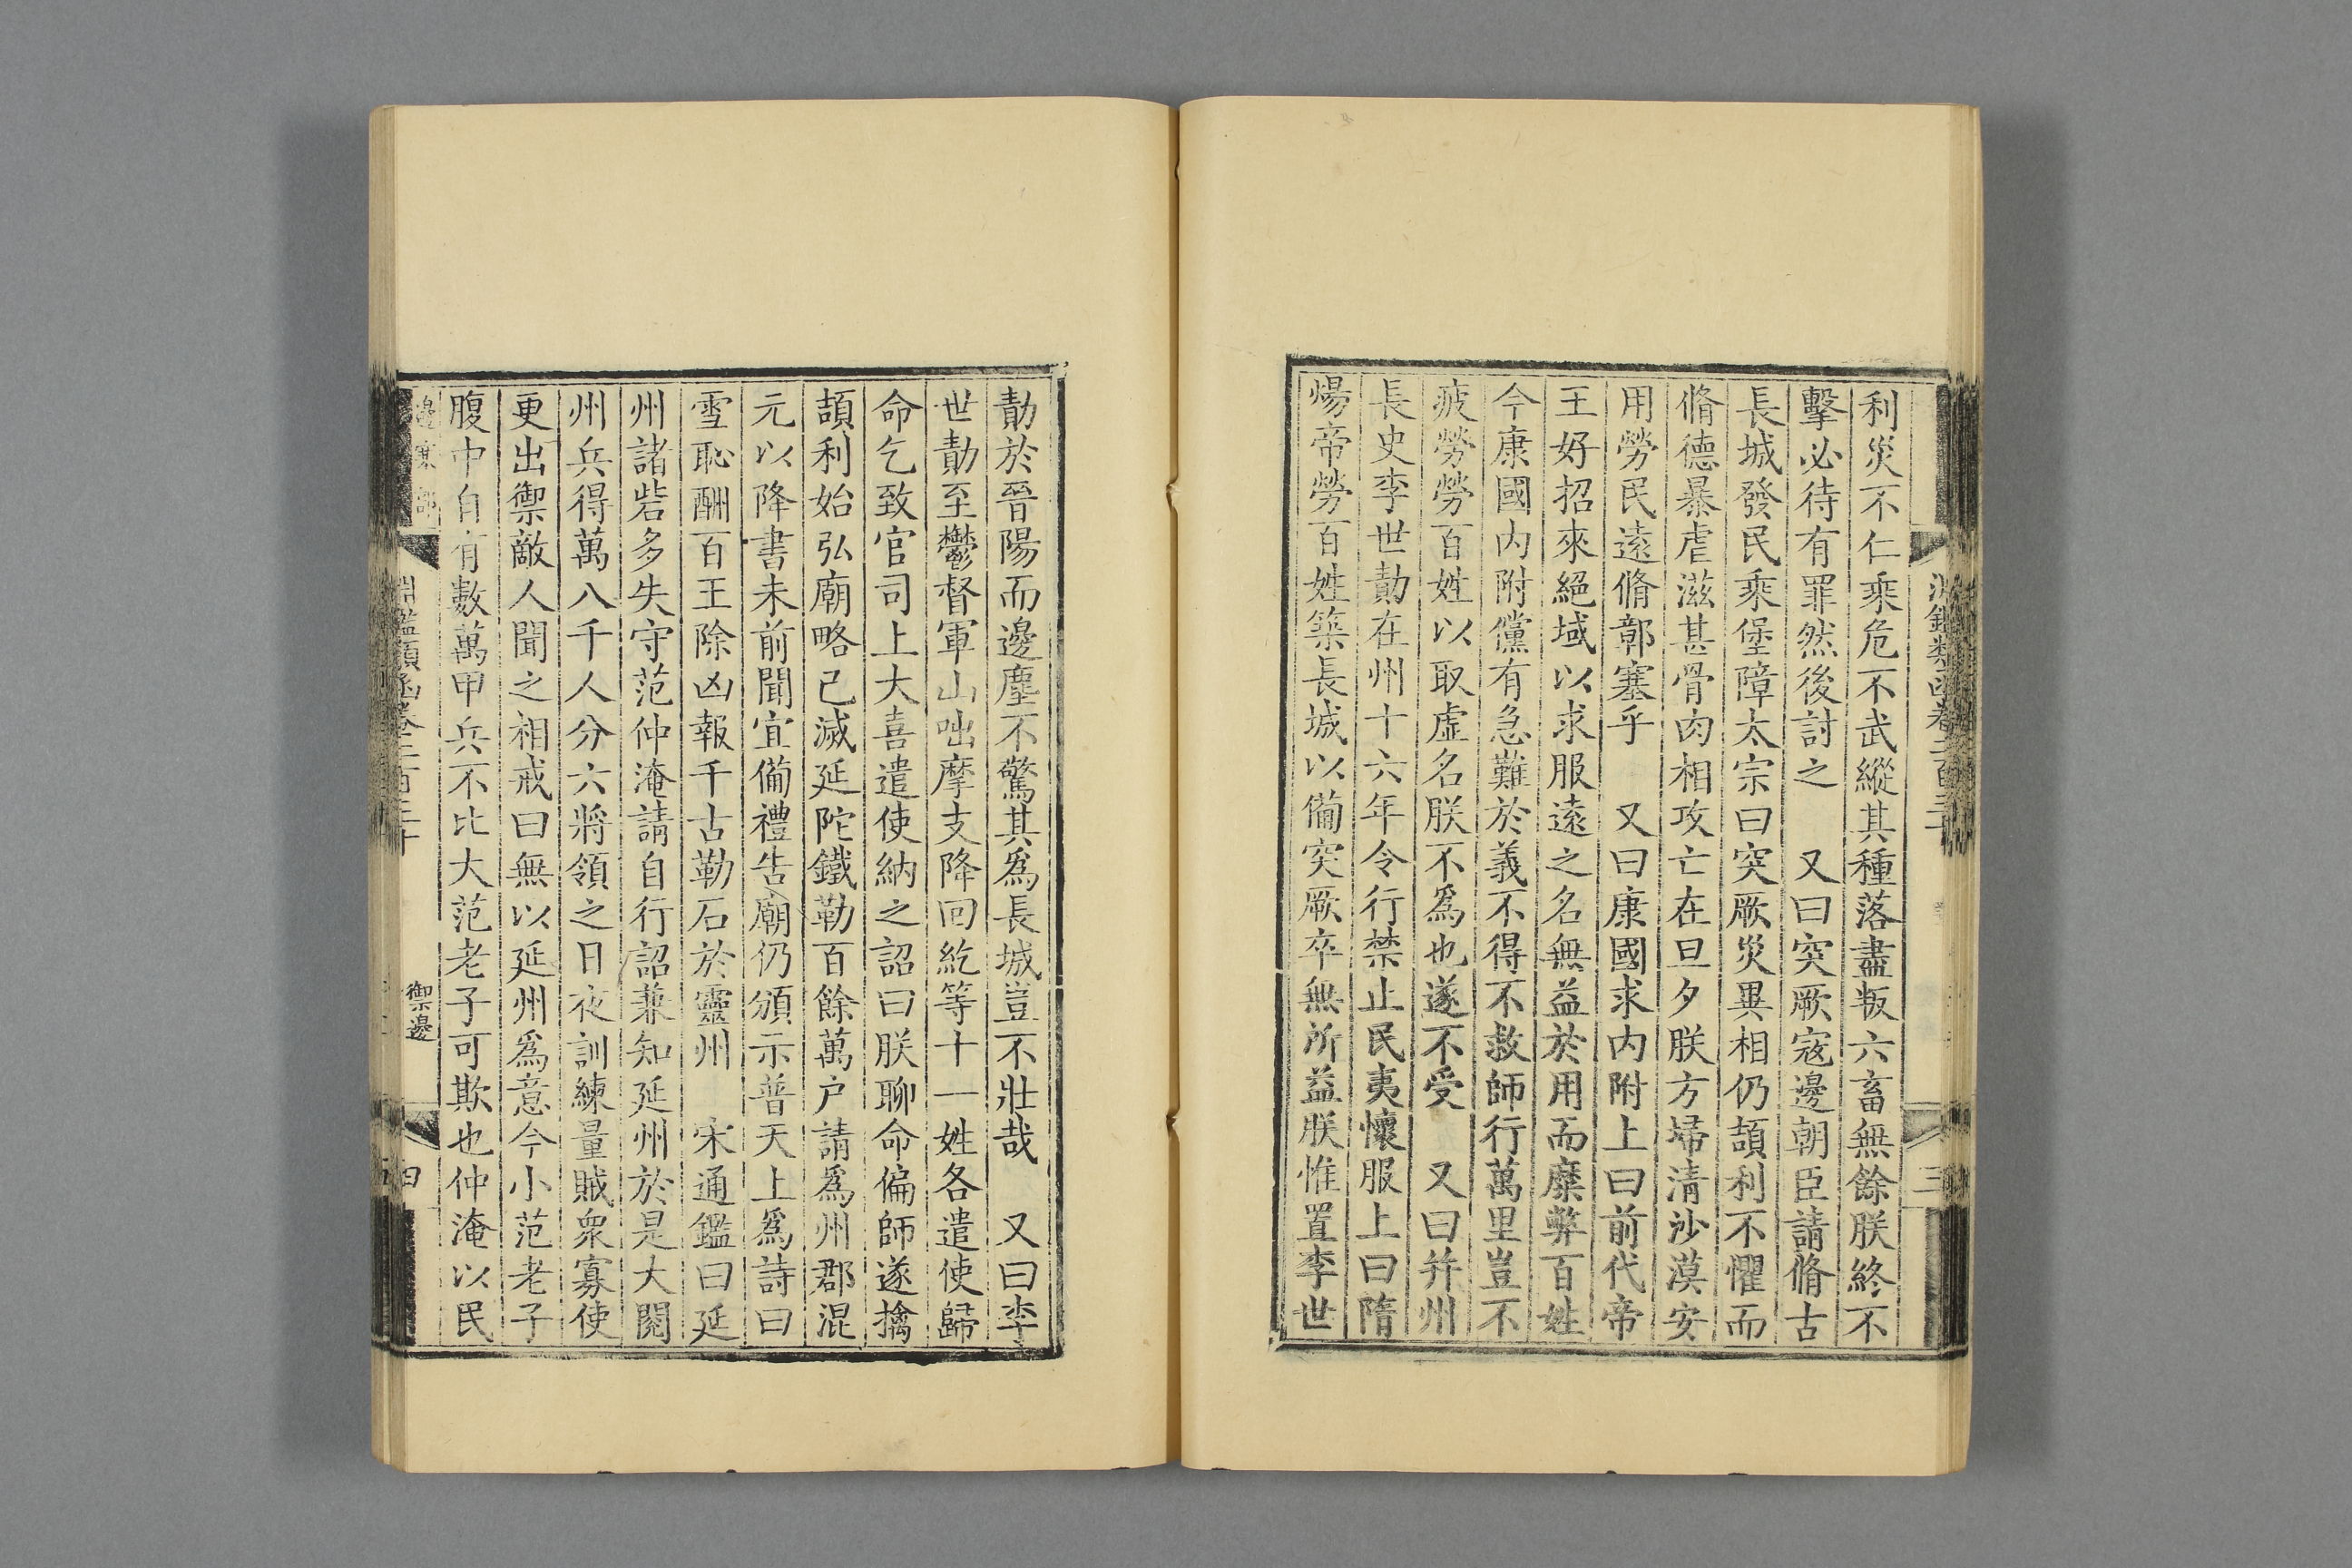 利災不仁乘危不武縱其種落盡叛六畜無餘朕終不
擊必待有罪然後討之　又曰突厥寇邊朝臣請脩古
長城發民乘堡障太宗曰突厥災異相仍頡利不懼而
脩德暴虐滋甚骨肉相攻亡在旦夕朕方埽清沙漠安
用勞民遠脩鄣塞乎　又曰康國求内附上曰前代帝
王好招來絕域以求服遠之名無益於用而糜弊百姓
今康國内附儻有急難於義不得不救師行萬里豈不
疲勞勞百姓以取虛名朕不爲也遂不受　又曰并州
長史李世勣在州十六年令行禁止民夷懷服上曰隋
煬帝勞百姓築長城以備突厥卒無所益朕惟置李世
勣於晉陽而邊塵不驚其爲長城豈不壯哉　又曰李
世勣至鬱督軍山咄摩支降回紇等十一姓各遣使歸
命乞致官司上大喜遣使納之詔曰朕聊命偏師遂擒
頡利始弘廟略已滅延陀鐵勒百餘萬户請爲州郡混
元以降書未前聞宜備禮告廟仍頒示普天上爲詩曰
雪恥酬百王除凶報千古勒石於靈州　宋通鑑曰延
州諸砦多失守范仲淹請自行詔兼知延州於是大閱
州兵得萬八千人分六將領之日夜訓練量賊衆寡使
更出禦敵人聞之相戒曰無以延州爲意今小范老子
腹中自有數萬甲兵不比大范老子可欺也仲淹以民
邊塞部
淵鑑類函卷二百三十
禦邊
四